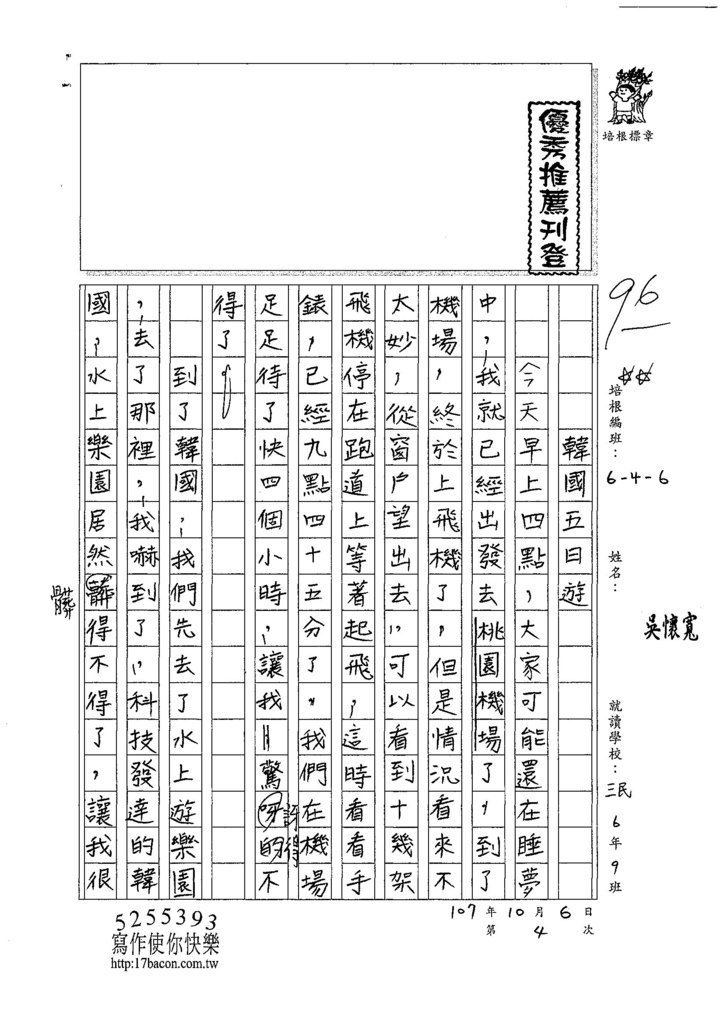 培根標章
優秀推薦刊登
96
培根編班：6-4-6
姓名：吳懷寬
就讀學校：三民 6年9班
107年10月6日
第4次
韓國五日遊
今天早上四點，大家可能還在睡夢
中，我就已經出發去桃園機場了，到了
機場，終於上飛機了，但是情況看來不
太妙，從窗戶望出去，可以看到十幾架
飛機停在跑道上等著起飛，這時看看手
錶，已經九點四十五分了，我們在機場
足足待了快四個小時，讓我驚呀的不
訝得
得了！
到了韓國，我們先去了水上遊樂園
，去了那裡，我嚇到了，科技發達的韓
國，水上樂園居然髒得不得了，讓我很
髒
5255393
寫作使你快樂
http:17bacon.com.tw